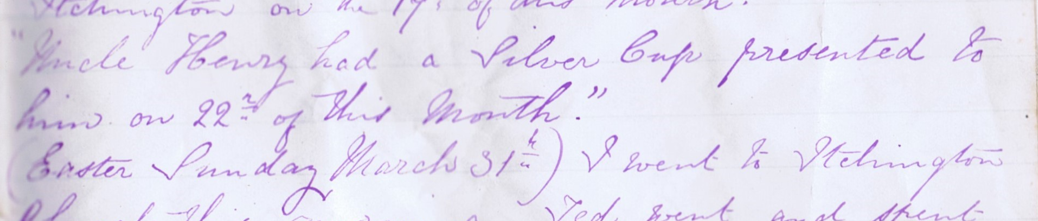 Itchington on the 19th of this Month.
"Uncle Henry had a Silver Cup presented to
him on 22nd of this Month."
(Easter Sunday March 31th) I went to Itchington
Ted went and spent